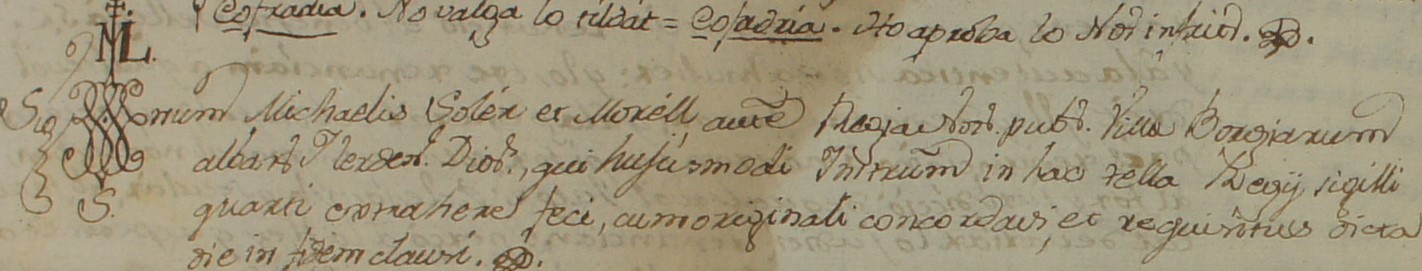 Cofradia. No valga lo tildat = Cofadria. Ho aproba lo Not. infrit.
ML.
Sig num Michaelis Solér et Moréll aucte Regia Not. pub. Villa Borgiarum
albar. Ilerden. Dios., qui hujusmodi Instrum in hac tella Regij sigilli
S. quarti extrahere feci, cum originali concordavi, et requisitus dicta
die in fidem clausi.